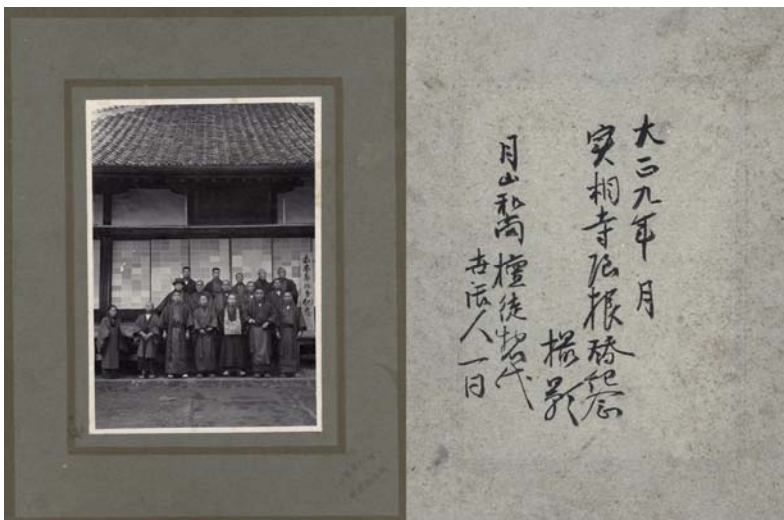 大正九年 月
実相寺屋根修紀念
撮影
月山和尚 檀徒惣代
世話人一同